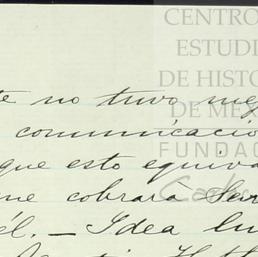 CENTRO
ESTUDI
DE HISTO
DE MÉX
FUNDAC
Carlos
te no tuvo mej
comunicacio
que esto equiva
me cobrará Ser
él. — Idea lu